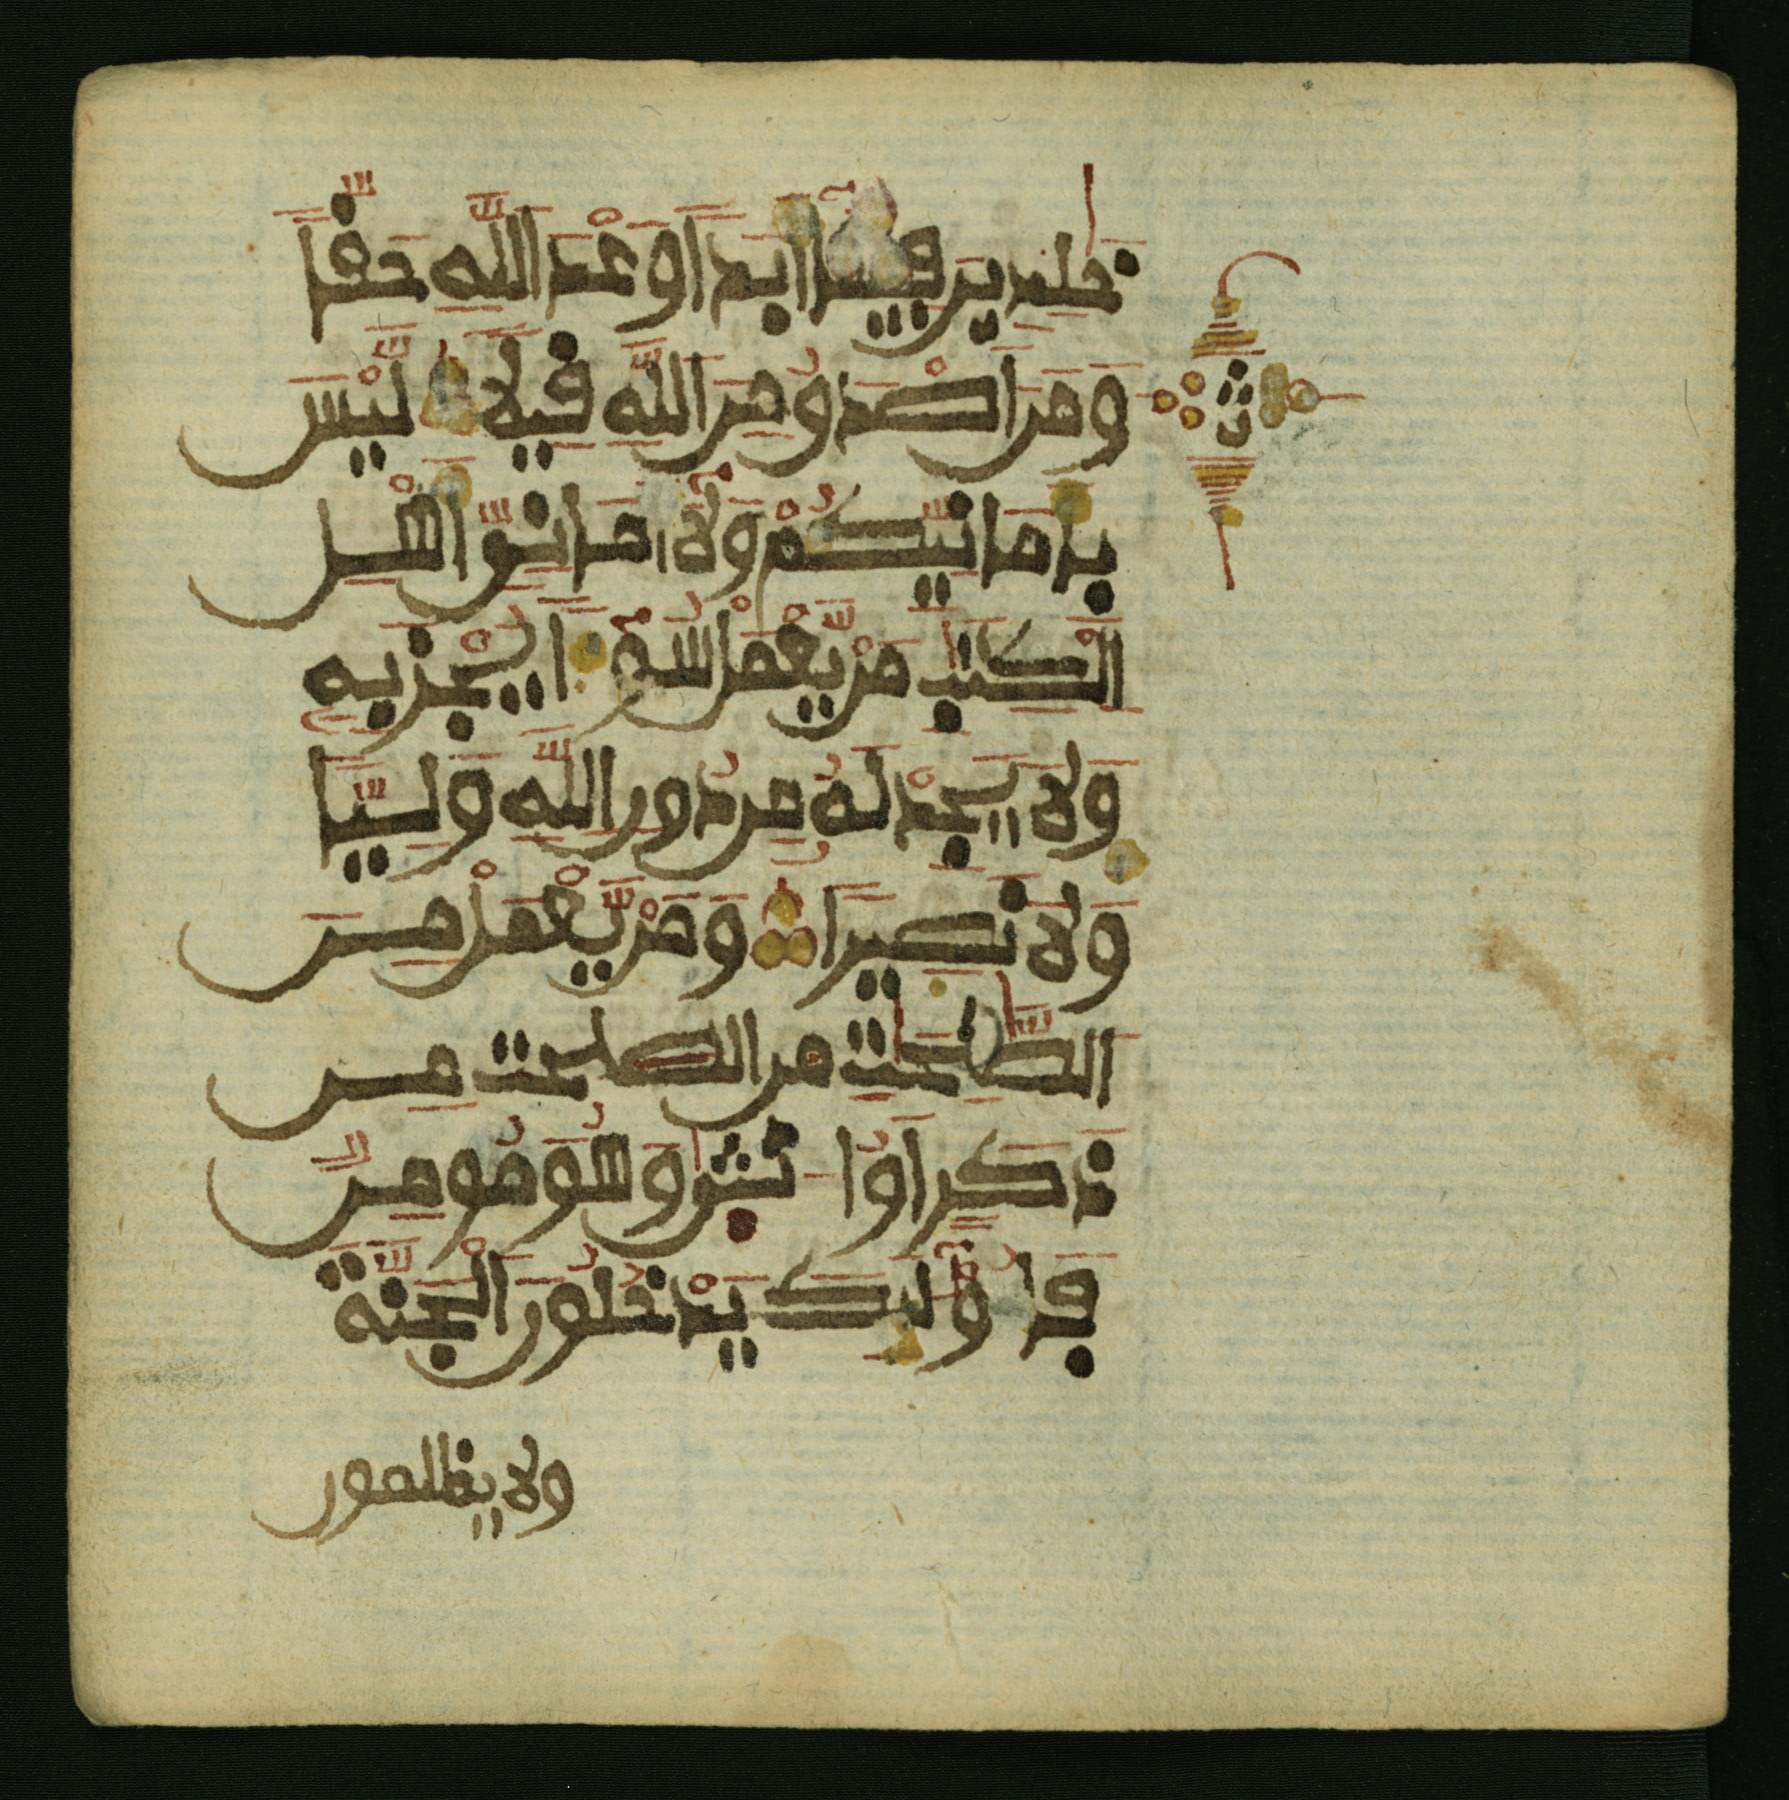 خلدين فيها ابدا وعد الله حقا
ومن اصدق من الله قيلا ليس
بامانيكم ولا اماني اهل
الكتب من يعمل سوءا يجز به
ولا يجد له من دون الله وليا
ولا نصيرا ومن يعمل من
الصلحت من الصلحت من
ذكر او انثى وهو مومن
فاولئك يدخلون الجنة
ولا يظلمون